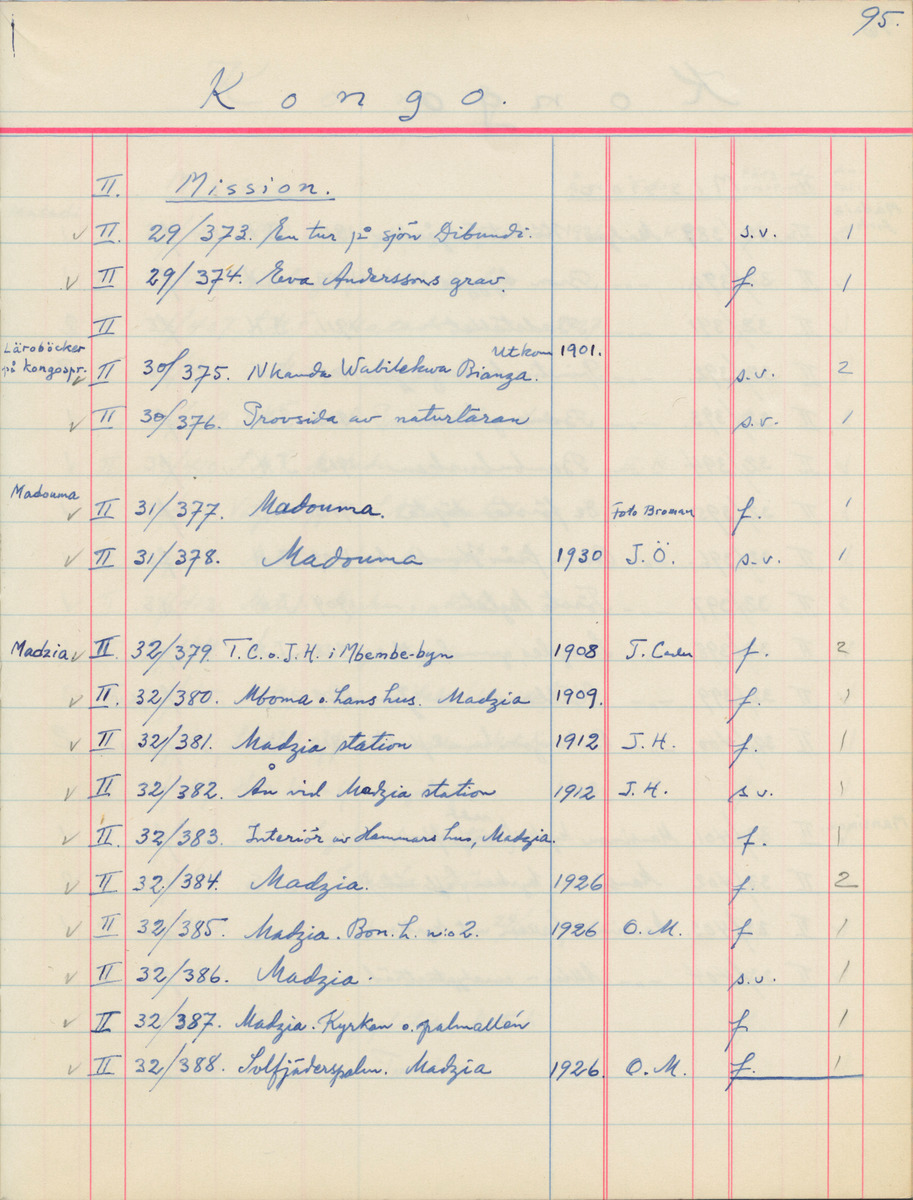 95.
Kongo.
II. Mission.
✓ II. 29/373. En tur på sjön Dibundi. s.v. 1
✓ II 29/374. Eva Anderssons grav. f. 1
II
Läroböcker på kongospr. ✓ II 30/375. Nkanda Wabilekwa Bianza. Utkom 1901. s.v. 2
✓ II 30/376. Provsida av naturläran s.v. 1
Madouma ✓ II 31/377. Madouma. Foto Broman f. 1
✓ II 31/378. Madouma 1930 J.Ö. s.v. 1
Madzia ✓ II. 32/379. T.C. o. J.H. i Mbembe-byn 1908 J. f. 2
✓ II. 32/380. Mboma o. hans hus. Madzia 1909. f. 1
✓ II 32/381. Madzia station 1912 J.H. f. 1
✓ II. 32/382. Ån vid Madzia station 1912 J.H. s.v. 1
✓ II. 32/383. Interiör av Hammars hus, Madzia. f. 1
✓ II 32/384. Madzia. 1926 f. 2
✓ II 32/385. Madzia. Bon.h. n:o 2. 1926 O.M. f 1
✓ II 32/386. Madzia. s.v. 1
✓ II 32/387. Madzia. Kyrkan o. palmallén f 1
✓ II 32/388. Solfjäderspalm. Madzia 1926. O.M. f. 1